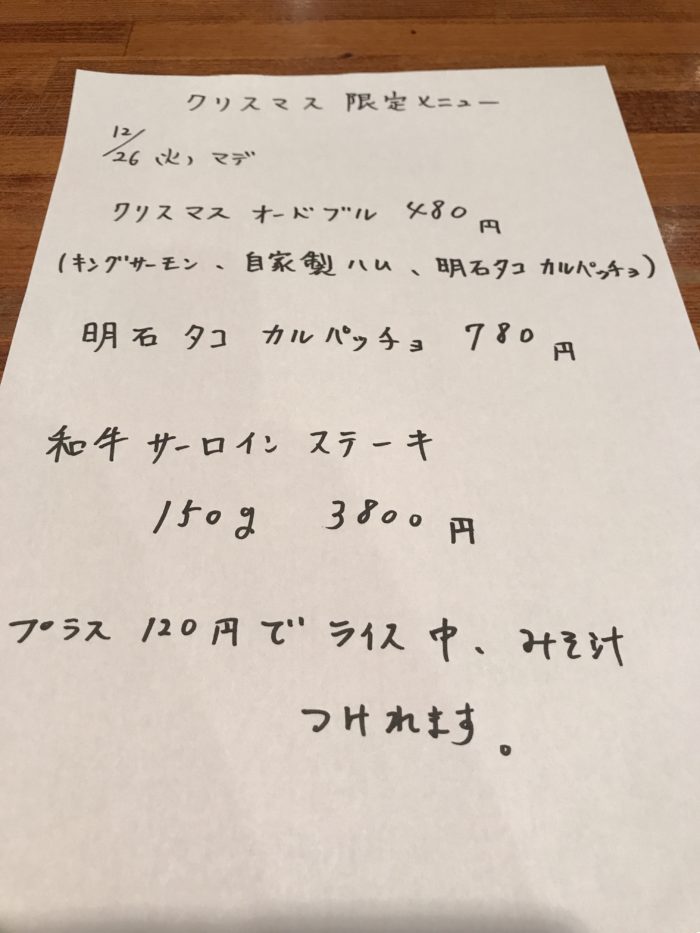 クリスマス 限定メニュー
12/26(火)マデ
クリスマス オードブル 480円
(キングサーモン、自家製ハム、明石タコ カルパッチョ)
明石タコ カルパッチョ 780円
和牛サーロインステーキ
150g 3800円
プラス120円でライス中、みそ汁
つけれます。